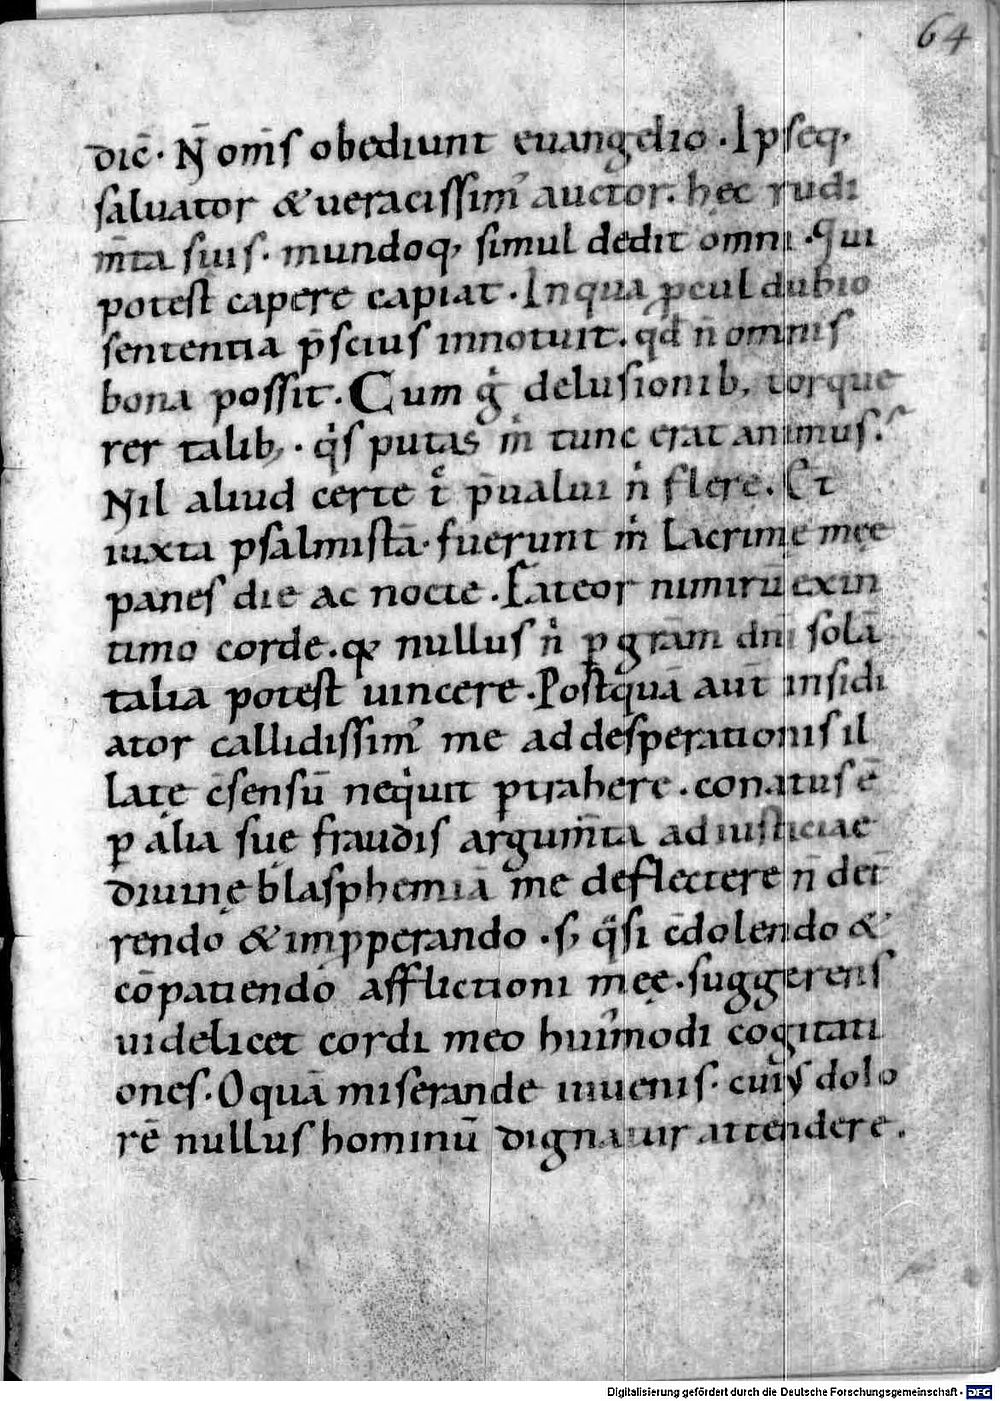 64
dic̄. N̄ om̄s obediunt euangelio. Ipseq;
saluator & ueracissim᾽ auctor. hęc rudi
m̄ta suis. mundoq; simul dedit omni. Qui
potest capere capiat. In qua ꝓcul dubio
sententia p̄scius innotuit. qd̄ n̄ omnis
bona possit. Cum gͥ delusionib; torque
rer talib;. qͥs putas mͥ tunc erat animus.
Nil aliud certe tͨ p̄ualui nͥ flere. Et
iuxta psalmistā. fuerunt mͥ lacrime męe
panes die ac nocte. Fateor nimirū ex in
timo corde. qꝫ nullus nͥ ꝑ grām dnī solā
talia potest uincere. Postquā aūt insidi
ator callidissim᾽ me ad desperationis il
latę c̄sensū neqͥuit ꝑtrahere. conatus ē
ꝑ alia suę fraudis argum̄ta ad iusticiae
diuinę blasphemiā me deflectere n̄ det̄
rendo & imꝓperando. s; qᷓsi c̄dolendo &
cōpatiendo afflictioni męę. suggerens
uidelicet cordi meo huim᾽odi cogitati
ones. O quā miserande iuuenis. cui᾽ dolo
rē nullus hominū dignatur attendere.
Digitalisierung gefördert durch die Deutsche Forschungsgemeinschaft - DFG